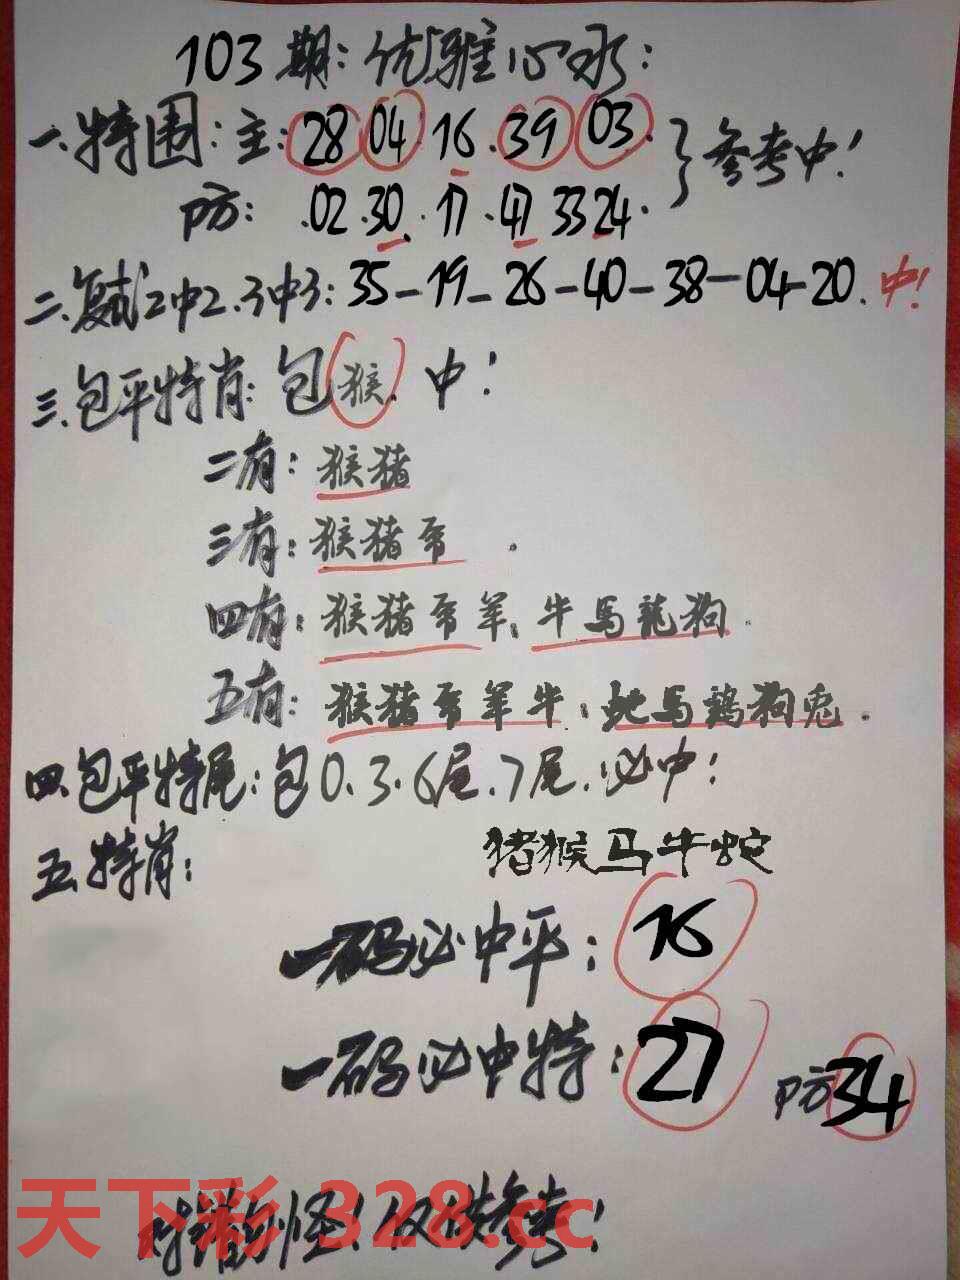 103期:优雅心水:
一.特围:主:28 04 16.39 03.}参考中!
防:.02.30.17.47 33 24.
二.复式2中2.3中3:35-19-26-40-38-04-20.中!
三.包平特肖:包猴.中!
二有:猴猪
三有:猴猪帝.
四有:猴猪帝羊,牛馬龍狗.
五有:猴猪帝羊牛:蛇馬鷄狗兎.
四.包平特尾:包0.3.6尾.7尾.必中!
五.特肖:
猪猴马牛蛇
一码必中平:16
一码必中特:27 防34
错勿怪!仅供参考!
天下彩 328.cc